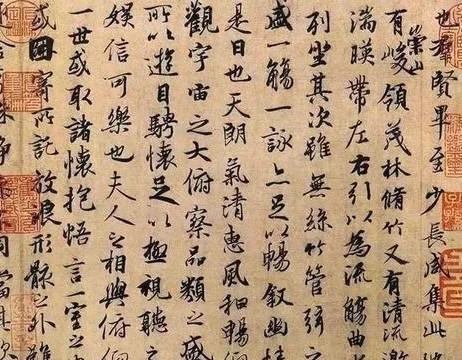 也羣賢畢至少長咸集此
有崇山峻領茂林脩竹又有清流激
湍暎帶左右引以為流觴曲
列坐其次雖無絲竹管弦之
盛一觴一詠亦足以暢敘幽情
是日也天朗氣清惠風和暢仰
觀宇宙之大俯察品類之
所以遊目騁懷足以極視聽之
娛信可樂也夫人之相與俯仰
一世或取諸懷抱悟言一室之
或因寄所託放浪形骸之外雖
殊靜同當其欣